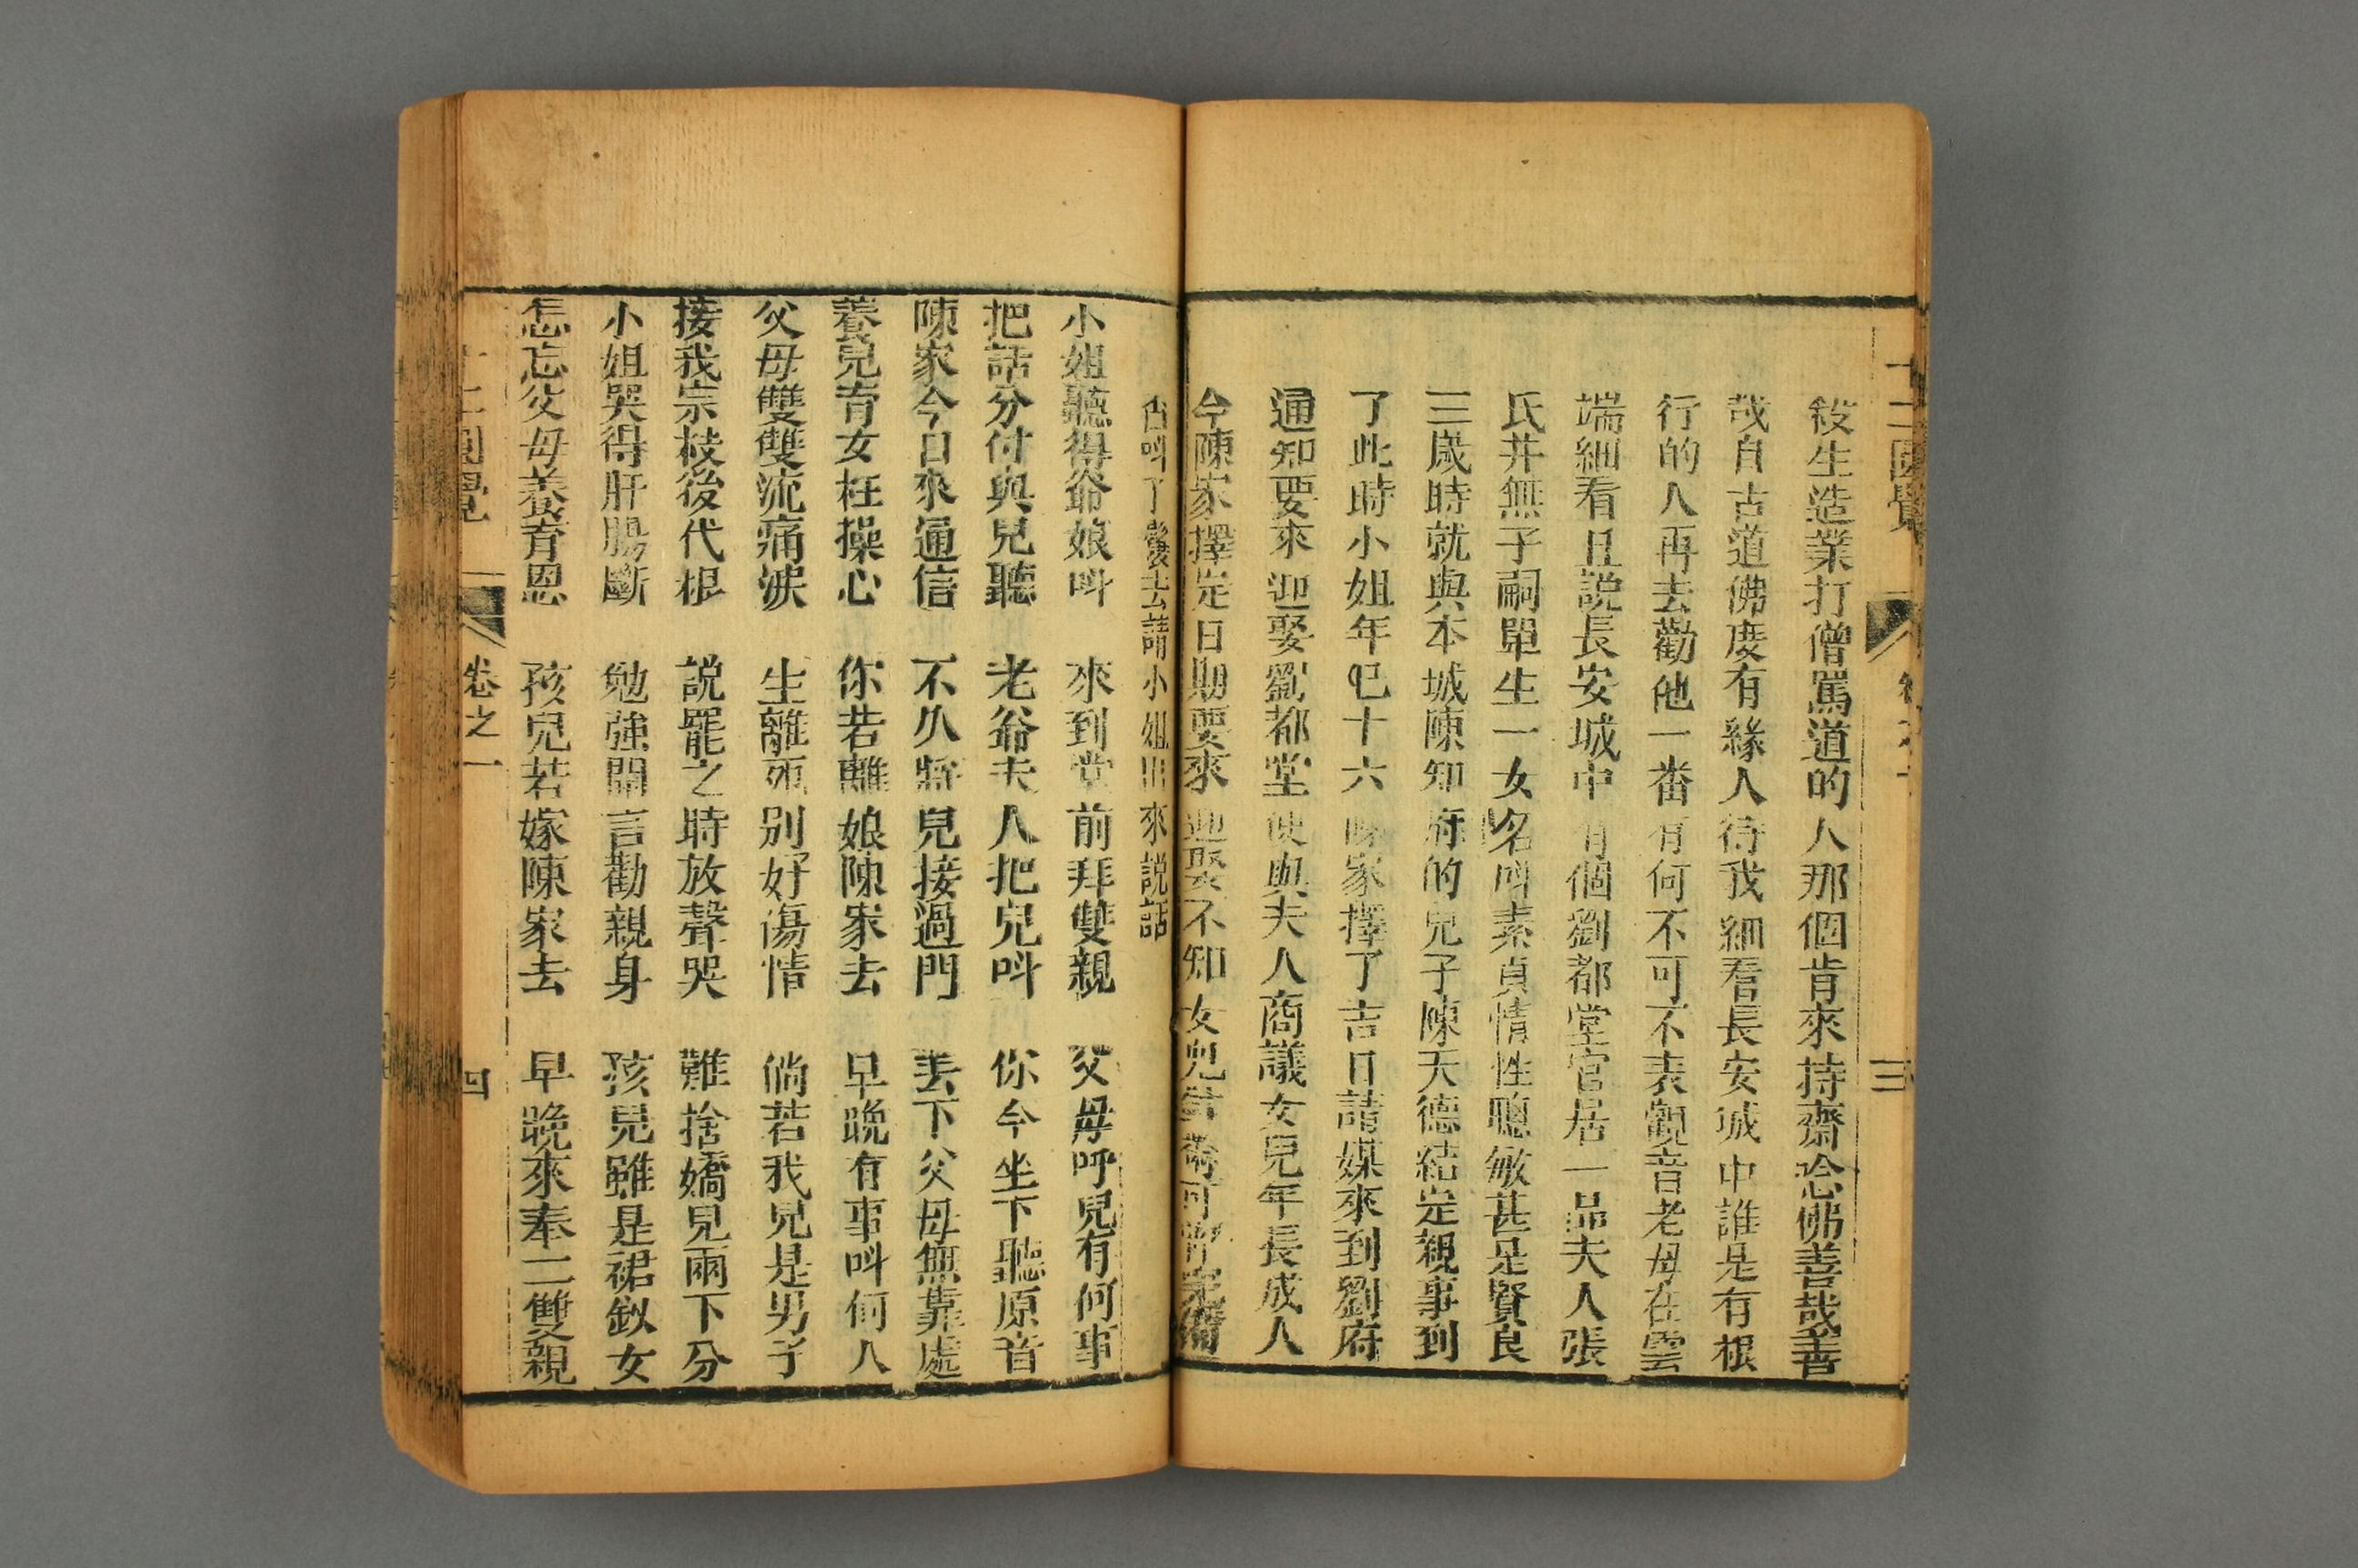 十二圓覺
三
殺生造業打僧罵道的人那個肯來持齋念佛善哉善
哉自古道佛度有緣人待我細看長安城中誰是有根
行的人再去勸他一番有何不可不表觀音老母在雲
端細看且説長安城中有個劉都堂官居一品夫人張
氏并無子嗣單生一女名叫素貞情性聰敏甚是賢良
三歲時就與本城陳知府的兒子陳天德結定親事到
了此時小姐年已十六陳家擇了吉日請媒來到劉府
通知要來迎娶劉都堂便與夫人商議女兒年長成人
今陳家擇定日期要來迎娶不知女兒
叫了鬟去請小姐出來説話
小姐聽得爺娘叫 來到堂前拜雙親 父母呼兒有何事
把話分付與兒聽 老爺夫人把兒叫 你今坐下聽原音
陳家今日來通信 不久將兒接過門 丟下父母無靠處
養兒育女枉操心 你若離娘陳家去 早晚有事叫何人
父母雙雙流痛淚 生離死別好傷情 倘若我兒是男子
接我宗枝後代根 説罷之時放聲哭 難捨嬌兒兩下分
小姐哭得肝腸斷 勉強開言勸親身 孩兒雖是裙釵女
怎忘父母養育恩 孩兒若嫁陳家去 早晚來奉二雙親
十二圓覺 卷之一 四